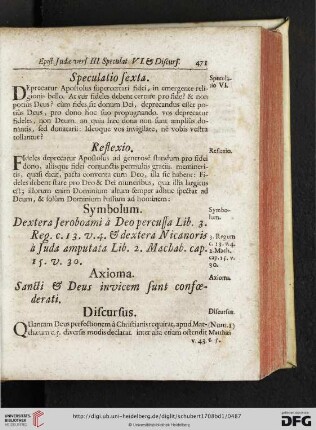 Epist. Judæ vers. III. Speculat. VI. & Discurs. 471
Speculatio sexta.
Specula-
tio VI.
DEprecatur Apostolus supercertari fidei, in emergente reli-
gionis bello. At cur fideles debent certare pro fide? & non
potius Deus? cum fides sit donum Dei, deprecandus esset po-
tius Deus, pro dono hoc suo propugnando. vos deprecatur
fideles, non Deum.
donatis, sed donatarii: Ideoque vos invigilate, ne vobis vestra
tollantur?
Reflexio.
Reflexio.
FIdeles deprecatur Apostolus ad generose standum pro fidei
dono, aliisque fidei conjunctis
quasi dicat, pacta conventa cum Deo, illa sic habent: Fi-
deles debent stare pro Deo & Dei muneribus, qua illis largitus
est; illorum enim Dominium
Deum, & solum Dominium
Symbolum.
Symbo-
lum.
Dextera Jeroboami à Deo percussa Lib. 3.
Reg. c. 13. v. 4. & dextera Nicanoris
3. Regum
c. 13. v. 4.
à Juda amputata Lib. 2. Machab. cap.
2. Mach.
cap. 15. v.
30.
15. v. 30.
Axioma.
Axioma.
Sancti & Deus invicem sunt confœ-
derati.
Discursus.
Discursus.
QUantam Deus professionem à Christianis requirat, apud Mat-
(Num. 1)
thæum c. 5. diversis modis declarat. inter alia etiam ostendit
Matthæi
v. 43. & 5.
UNIVERSITÄTS-
BIBLIOTHEK
HEIDELBERG
http://digi.ub.uni-heidelberg.de/diglit/schubert1708bd1/0487
© Universitätsbibliothek Heidelberg
gefördert durch die
DFG